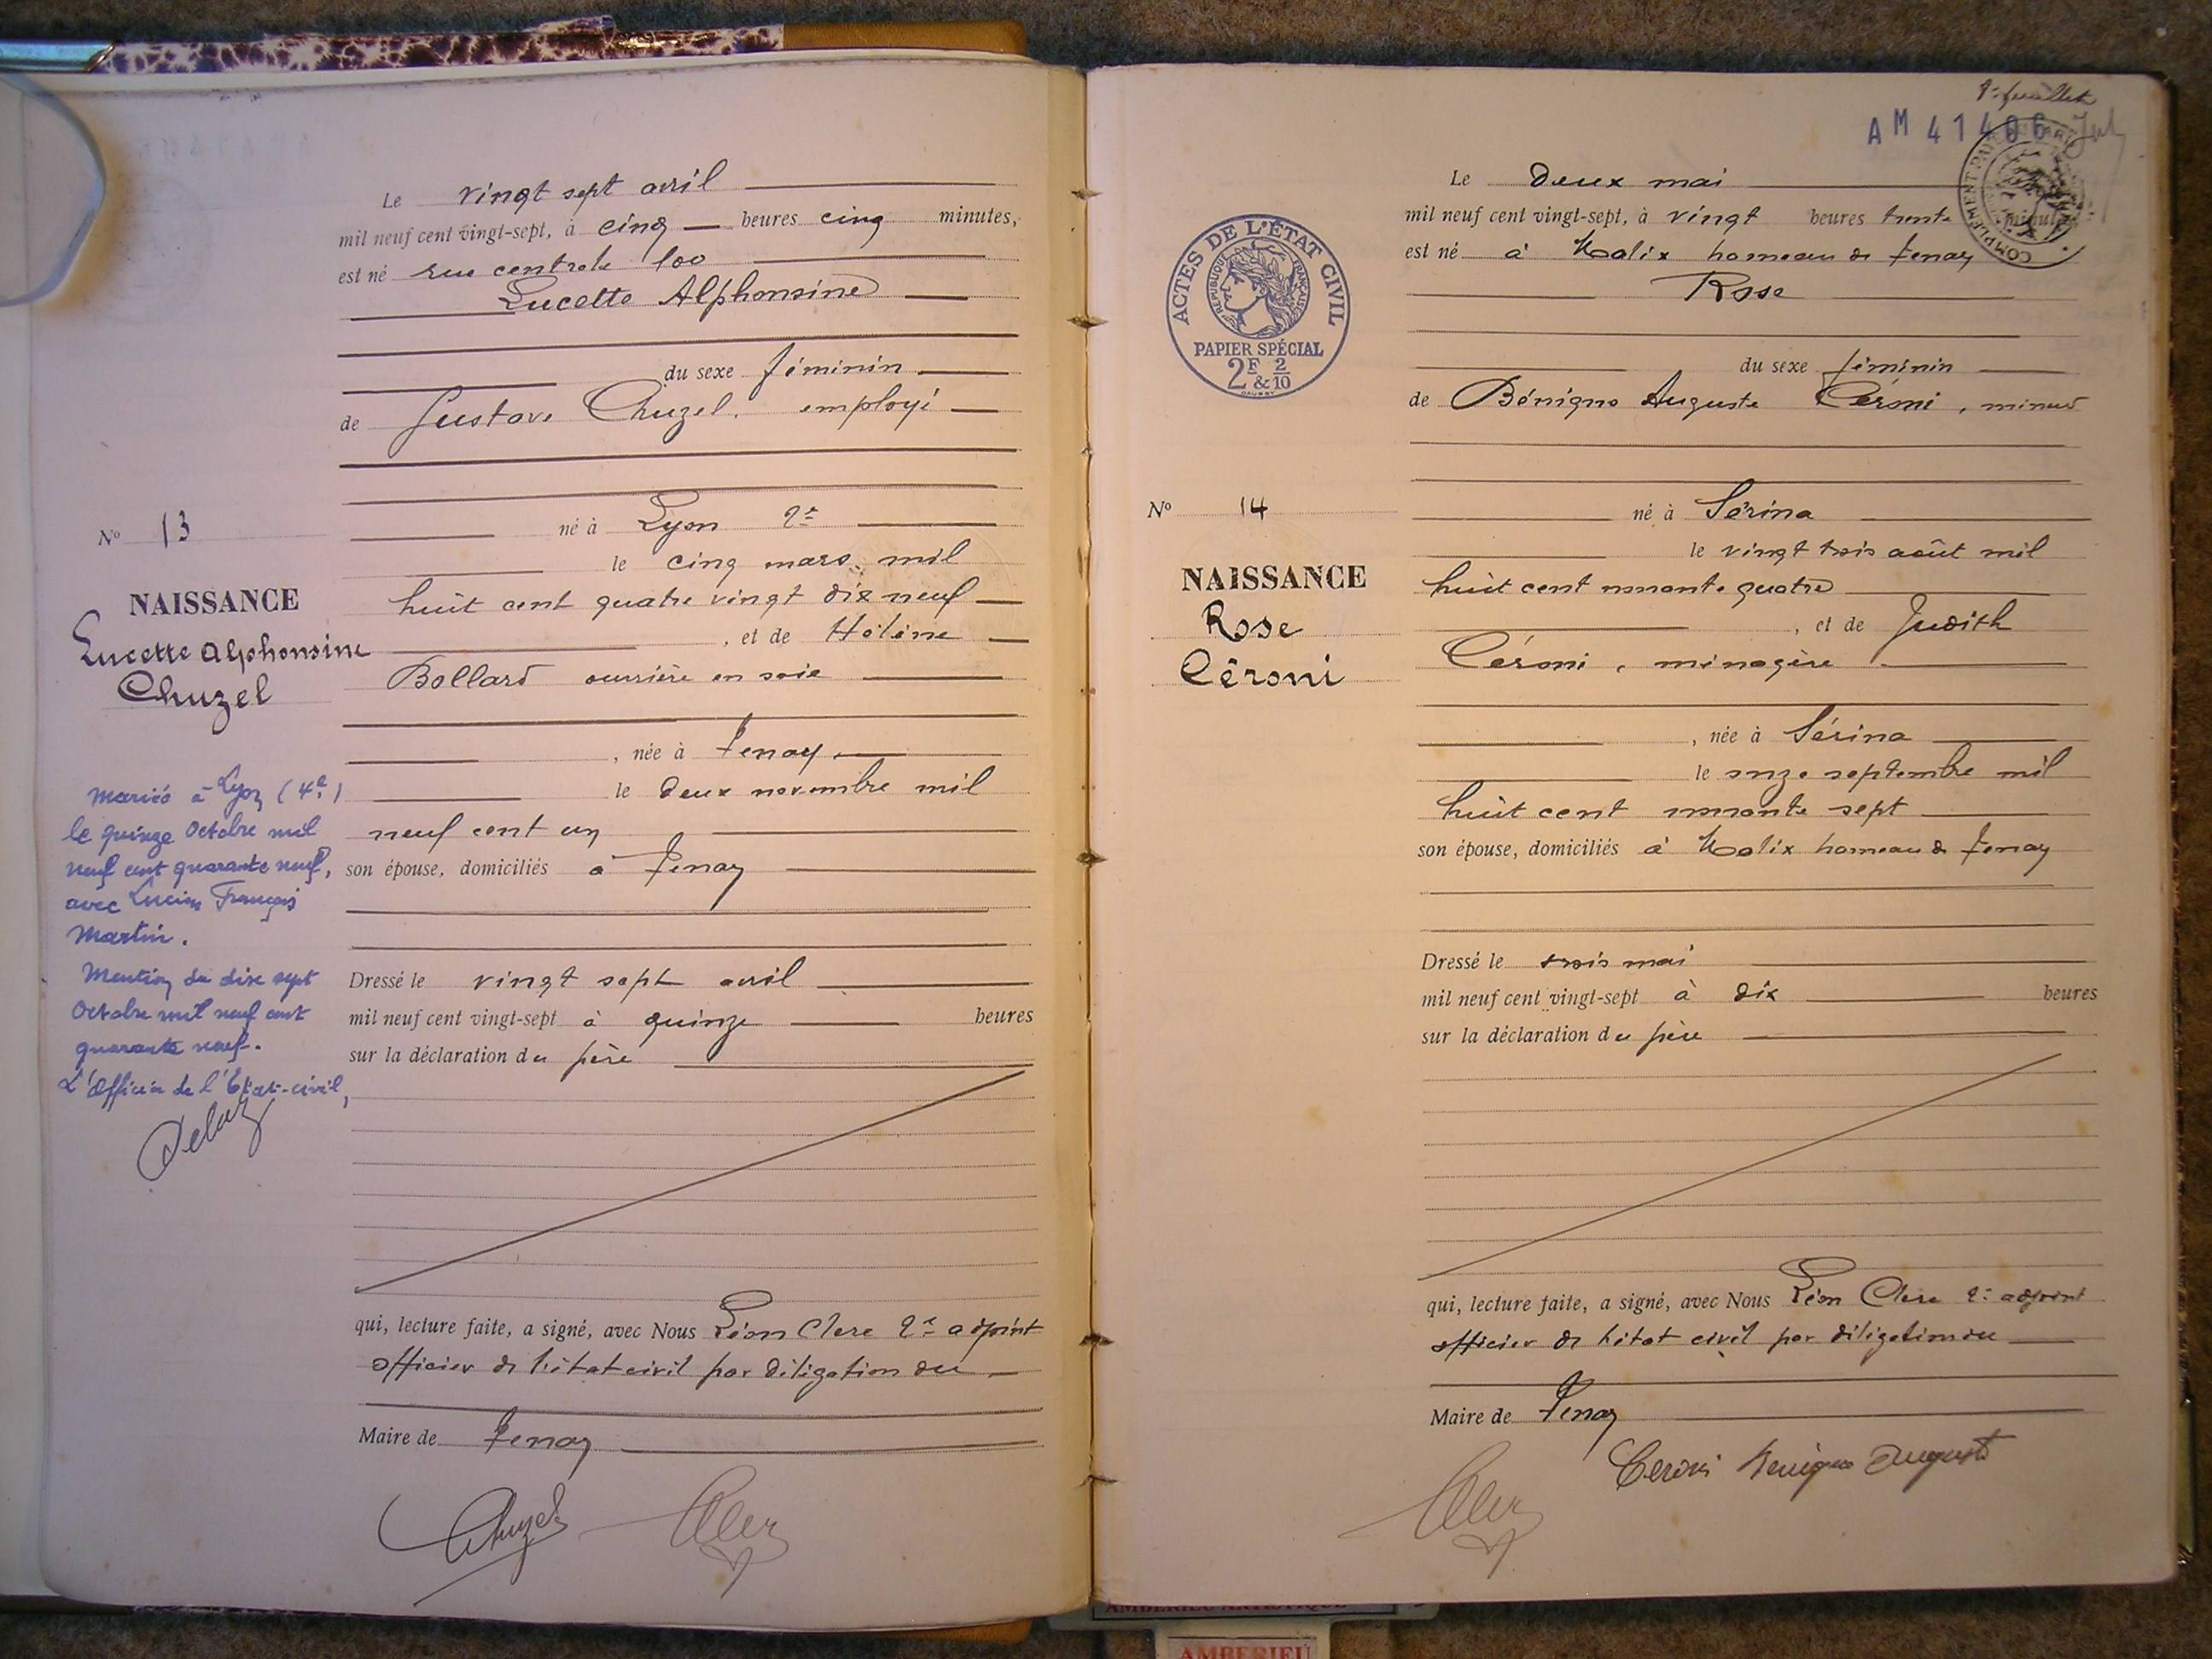 Le vingt sept avril
mil neuf cent vingt-sept, à cinq heures cinq minutes,
est né rue centrale 100
Lucette Alphonsine
du sexe féminin
de Gustave Chuzel, employé
né à Lyon 2e
le cinq mars mil
huit cent quatre vingt dix neuf
, et de Hélène
Bollard ouvrière en soie
, née à Tenay
le deux novembre mil
neuf cent un
son épouse, domiciliés à Tenay
Dressé le vingt sept avril
mil neuf cent vingt-sept à quinze heures
sur la déclaration du père
qui, lecture faite, a signé, avec Nous Léon Clerc 2e adjoint
officier de l'état civil par déligation du
Maire de Tenay
Chuzel
Nº 13
NAISSANCE
Lucette Alphonsine
Chuzel
Mariée à Lyon (4e)
le quinze Octobre mil
neuf cent quarante neuf,
avec Lucien François
Martin.
Mention du dix sept
Octobre mil neuf cent
quarante neuf.
L'Officier de l'Etat-civil,
2e feuillet
AM 41406
COMPLÉMENT
Le deux mai
mil neuf cent vingt-sept, à vingt heures trente minutes
est né à Malix hameau de Tenay
Rose
du sexe féminin
de Bénigno Auguste Céroni, mineur
né à Sérina
le vingt trois août mil
huit cent nonante quatre
, et de Judith
Céroni, ménagère
, née à Sérina
le onze septembre mil
huit cent nonante sept
son épouse, domiciliés à Malix hameau de Tenay
Dressé le trois mai
mil neuf cent vingt-sept à dix heures
sur la déclaration du père
qui, lecture faite, a signé, avec Nous Léon Clerc 2e adjoint
officier de l'état civil par déligation du
Maire de Tenay
Ceroni Benigno Auguste
ACTES DE L'ÉTAT CIVIL
RÉPUBLIQUE FRANÇAISE
PAPIER SPÉCIAL
2F &2/10
Nº 14
NAISSANCE
Rose
Céroni
AMBERIEU